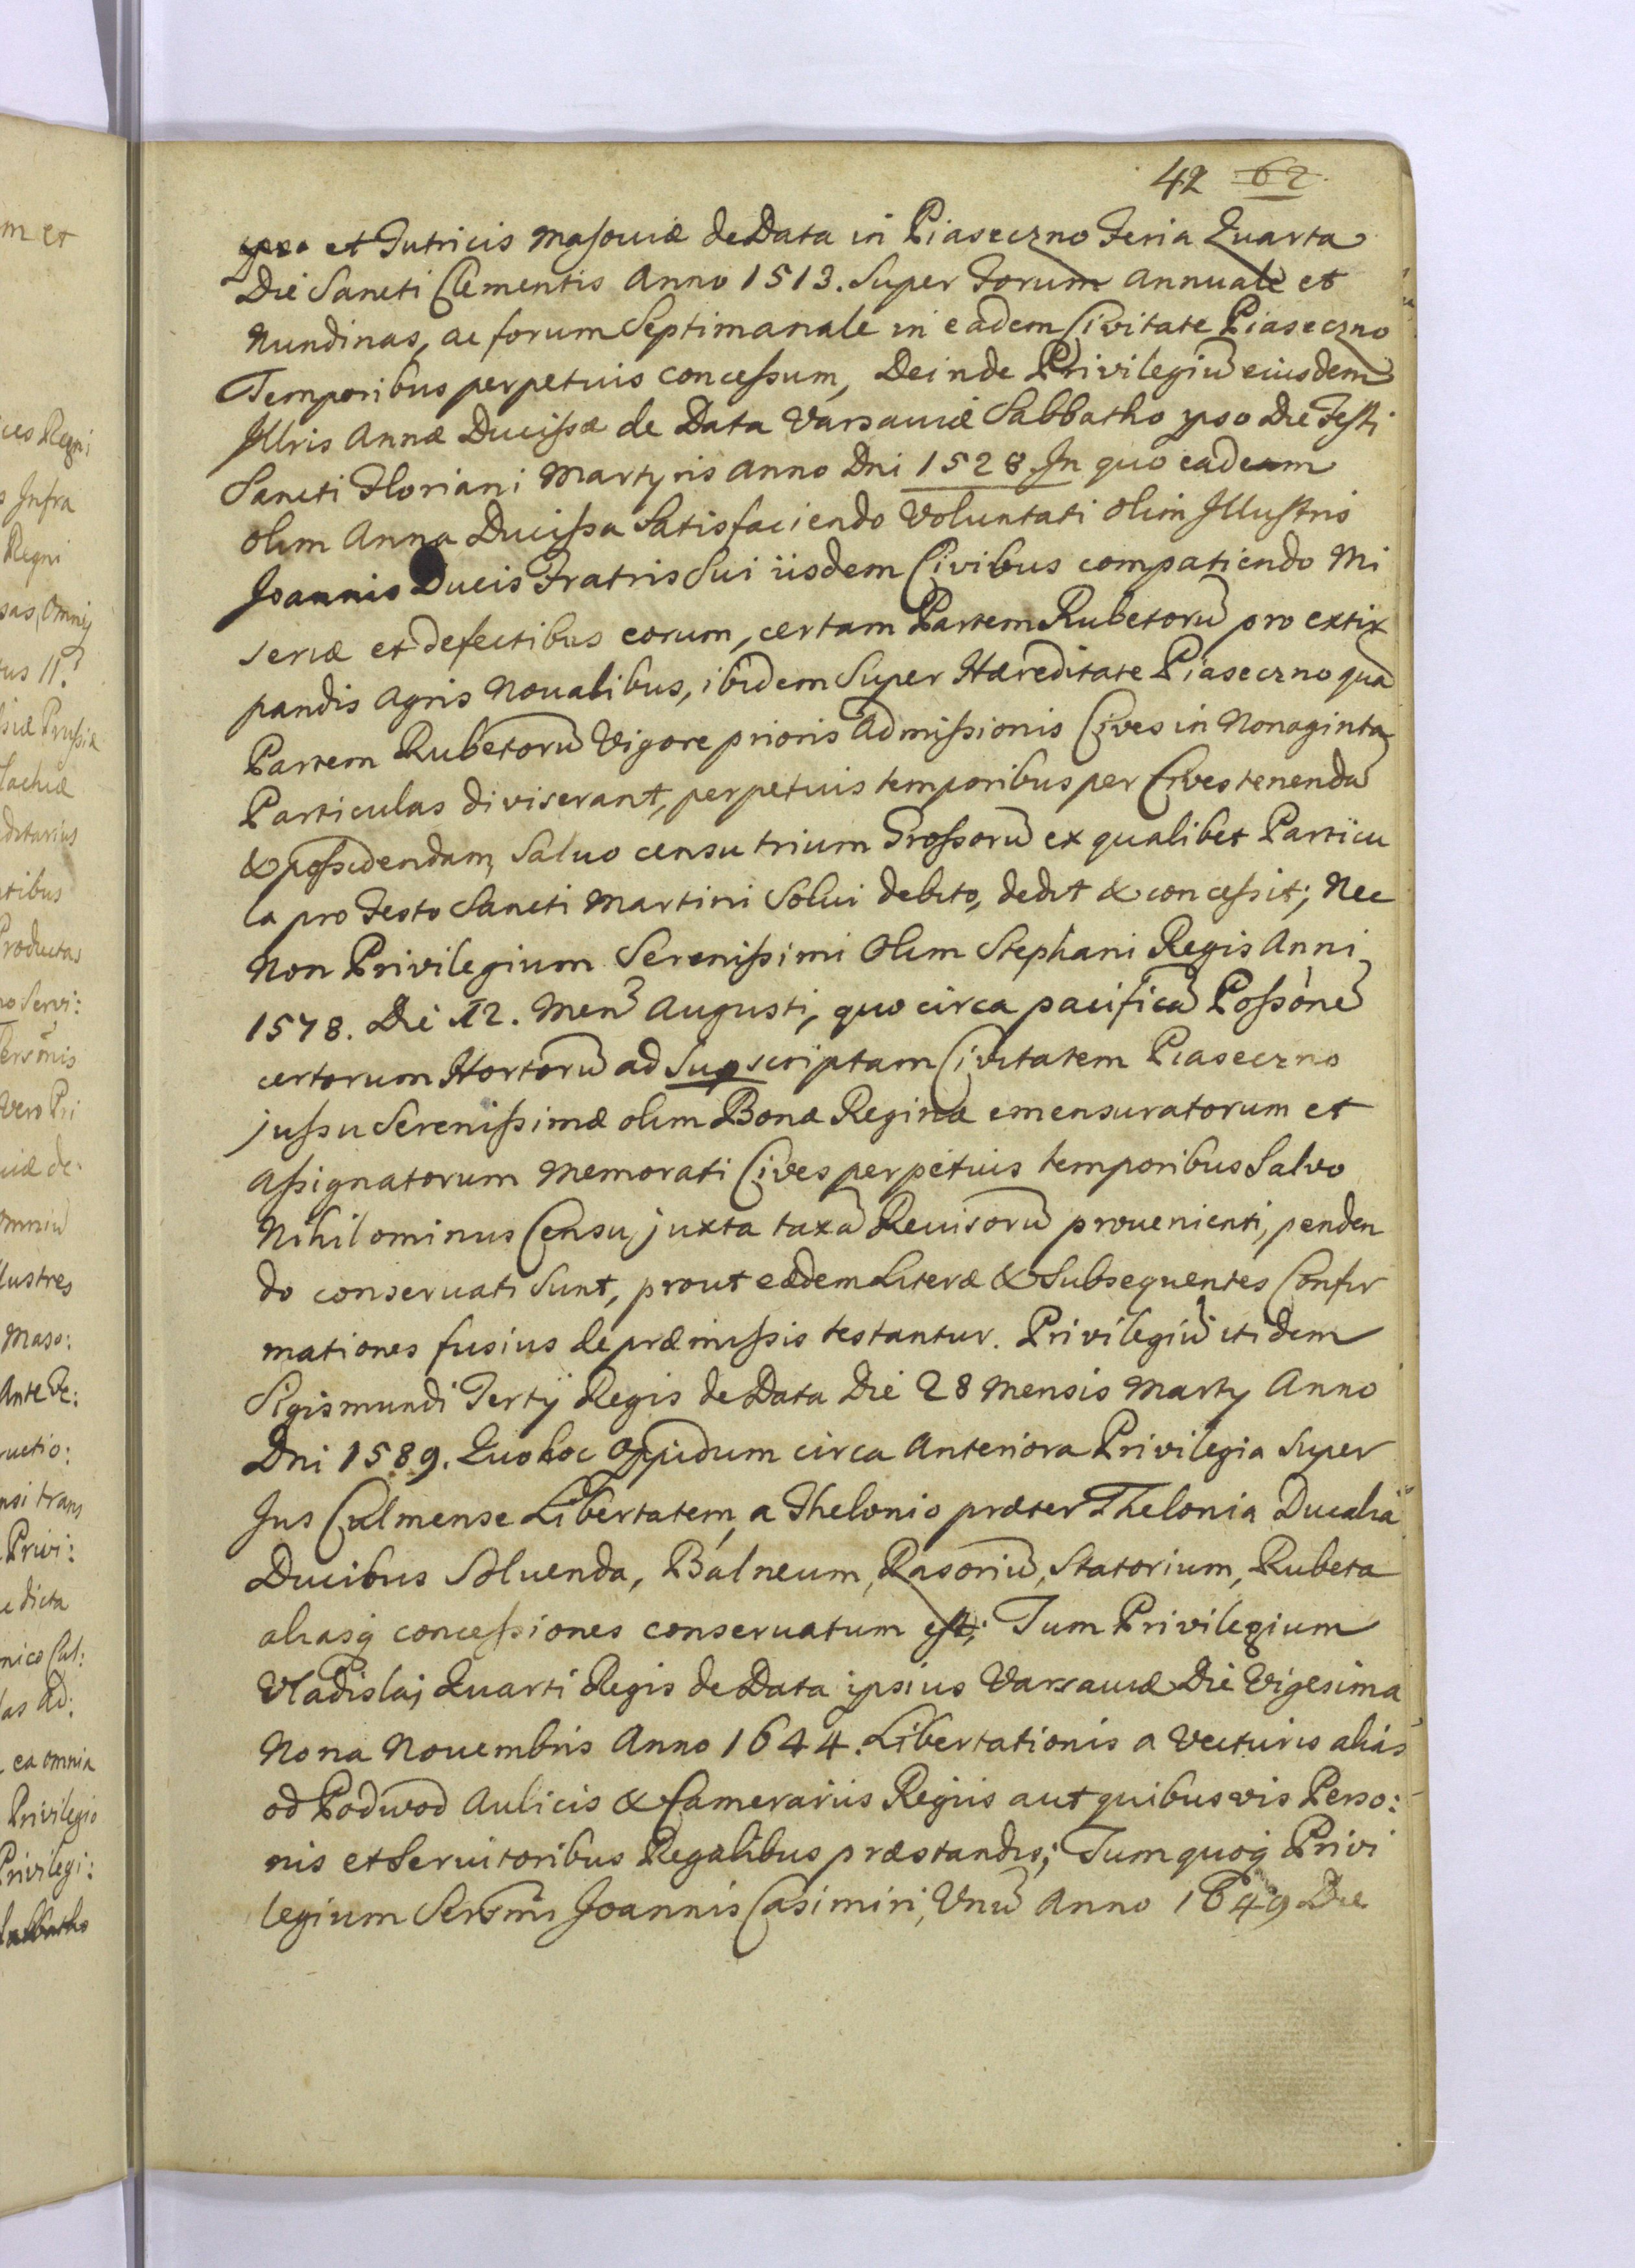 42 62
et Tutricis Masouiæ de Data in Piaseczno Feria Quarta
Die Sancti Clementis Anno 1513. Super Forum Annuale et
Nundinas, ac forum Septimanale in eadem Civitate Piaseczno
Temporibus perpetuis concessum, Deinde Privilegiũ eiusdem
Jllris Annæ Ducissæ de Data Varsauiæ Sabbatho ypso Die Festi
Sancti Floriani Martyris Anno Dni 1528. Jn quo eadem
olim Anna Ducissa Satisfaciendo Voluntati olim Jllustris
Joannis Ducis Fratris Sui iisdem Civibus compatiendo Mi
seriæ et defectibus eorum, certam Partem Rubetorũ pro extir
pandis Agris Noualibus, ibidem Super Hæreditate Piaseczno quã
Partem Rubetorũ Vigore prioris Admissionis Cives in Nonaginta
Particulas diviserant, perpetuis temporibus per Cives tenendã
& possidendam, Saluo censu trium Grossorũ ex qualibet Particu
la pro Festo Sancti Martini Solui debito, dedit & concessit; Nec
Non Privilegium Serenissimi Olim Stephani Regis Anni
1578. Die 12. Men̄ Augusti, quo circa pacificã Possonẽ
certorum Hortorũ ad Supscriptam Civitatem Piaseczno
jussu Serenissimæ olim Bonæ Reginæ emensuratorum et
Assignatorum Memorati Cives perpetuis temporibus Salvo
Nihilominus Censu, juxta taxã Reuisorũ prouenienti, penden
do conseruati Sunt, prout eædem Literæ & Subsequentes Confir
mationes fusius de præmissis testantur. Privilegiũ itidem
Sigismundi Tertÿ Regis de Data Die 28 Mensis Marty Anno
Dni 1589. Quo hoc Oppidum circa Anteriora Privilegia Super
Jus Culmense Libertatem, a Thelonio præter Thelonia Ducalia
Ducibus Soluenda, Balneum, Rasoriũ, Statorium, Rubeta
aliasq concessiones conseruatum est; Tum Privilegium
Vladislaj Quarti Regis de Data ipsius Varsauiæ Die Vigesima
Nona Nouembris Anno 1644. Libertationis a Vecturis alias
od Podwod Aulicis & Camerariis Regiis aut quibusvis Perso:
nis et Seruitoribus Regalibus præstandis; Tum quoq Privi
legium Sersm̄i Joannis Casimiri, Vnũ Anno 1649 Die